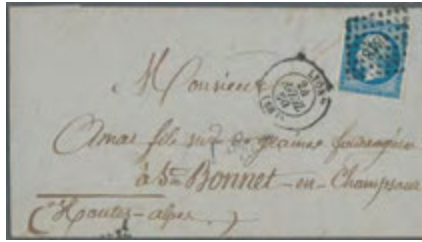 Monsieur
LYON
(68)
fils md de graines fourragères
à St Bonnet - en - Champsaur
(Hautes-alpes.)